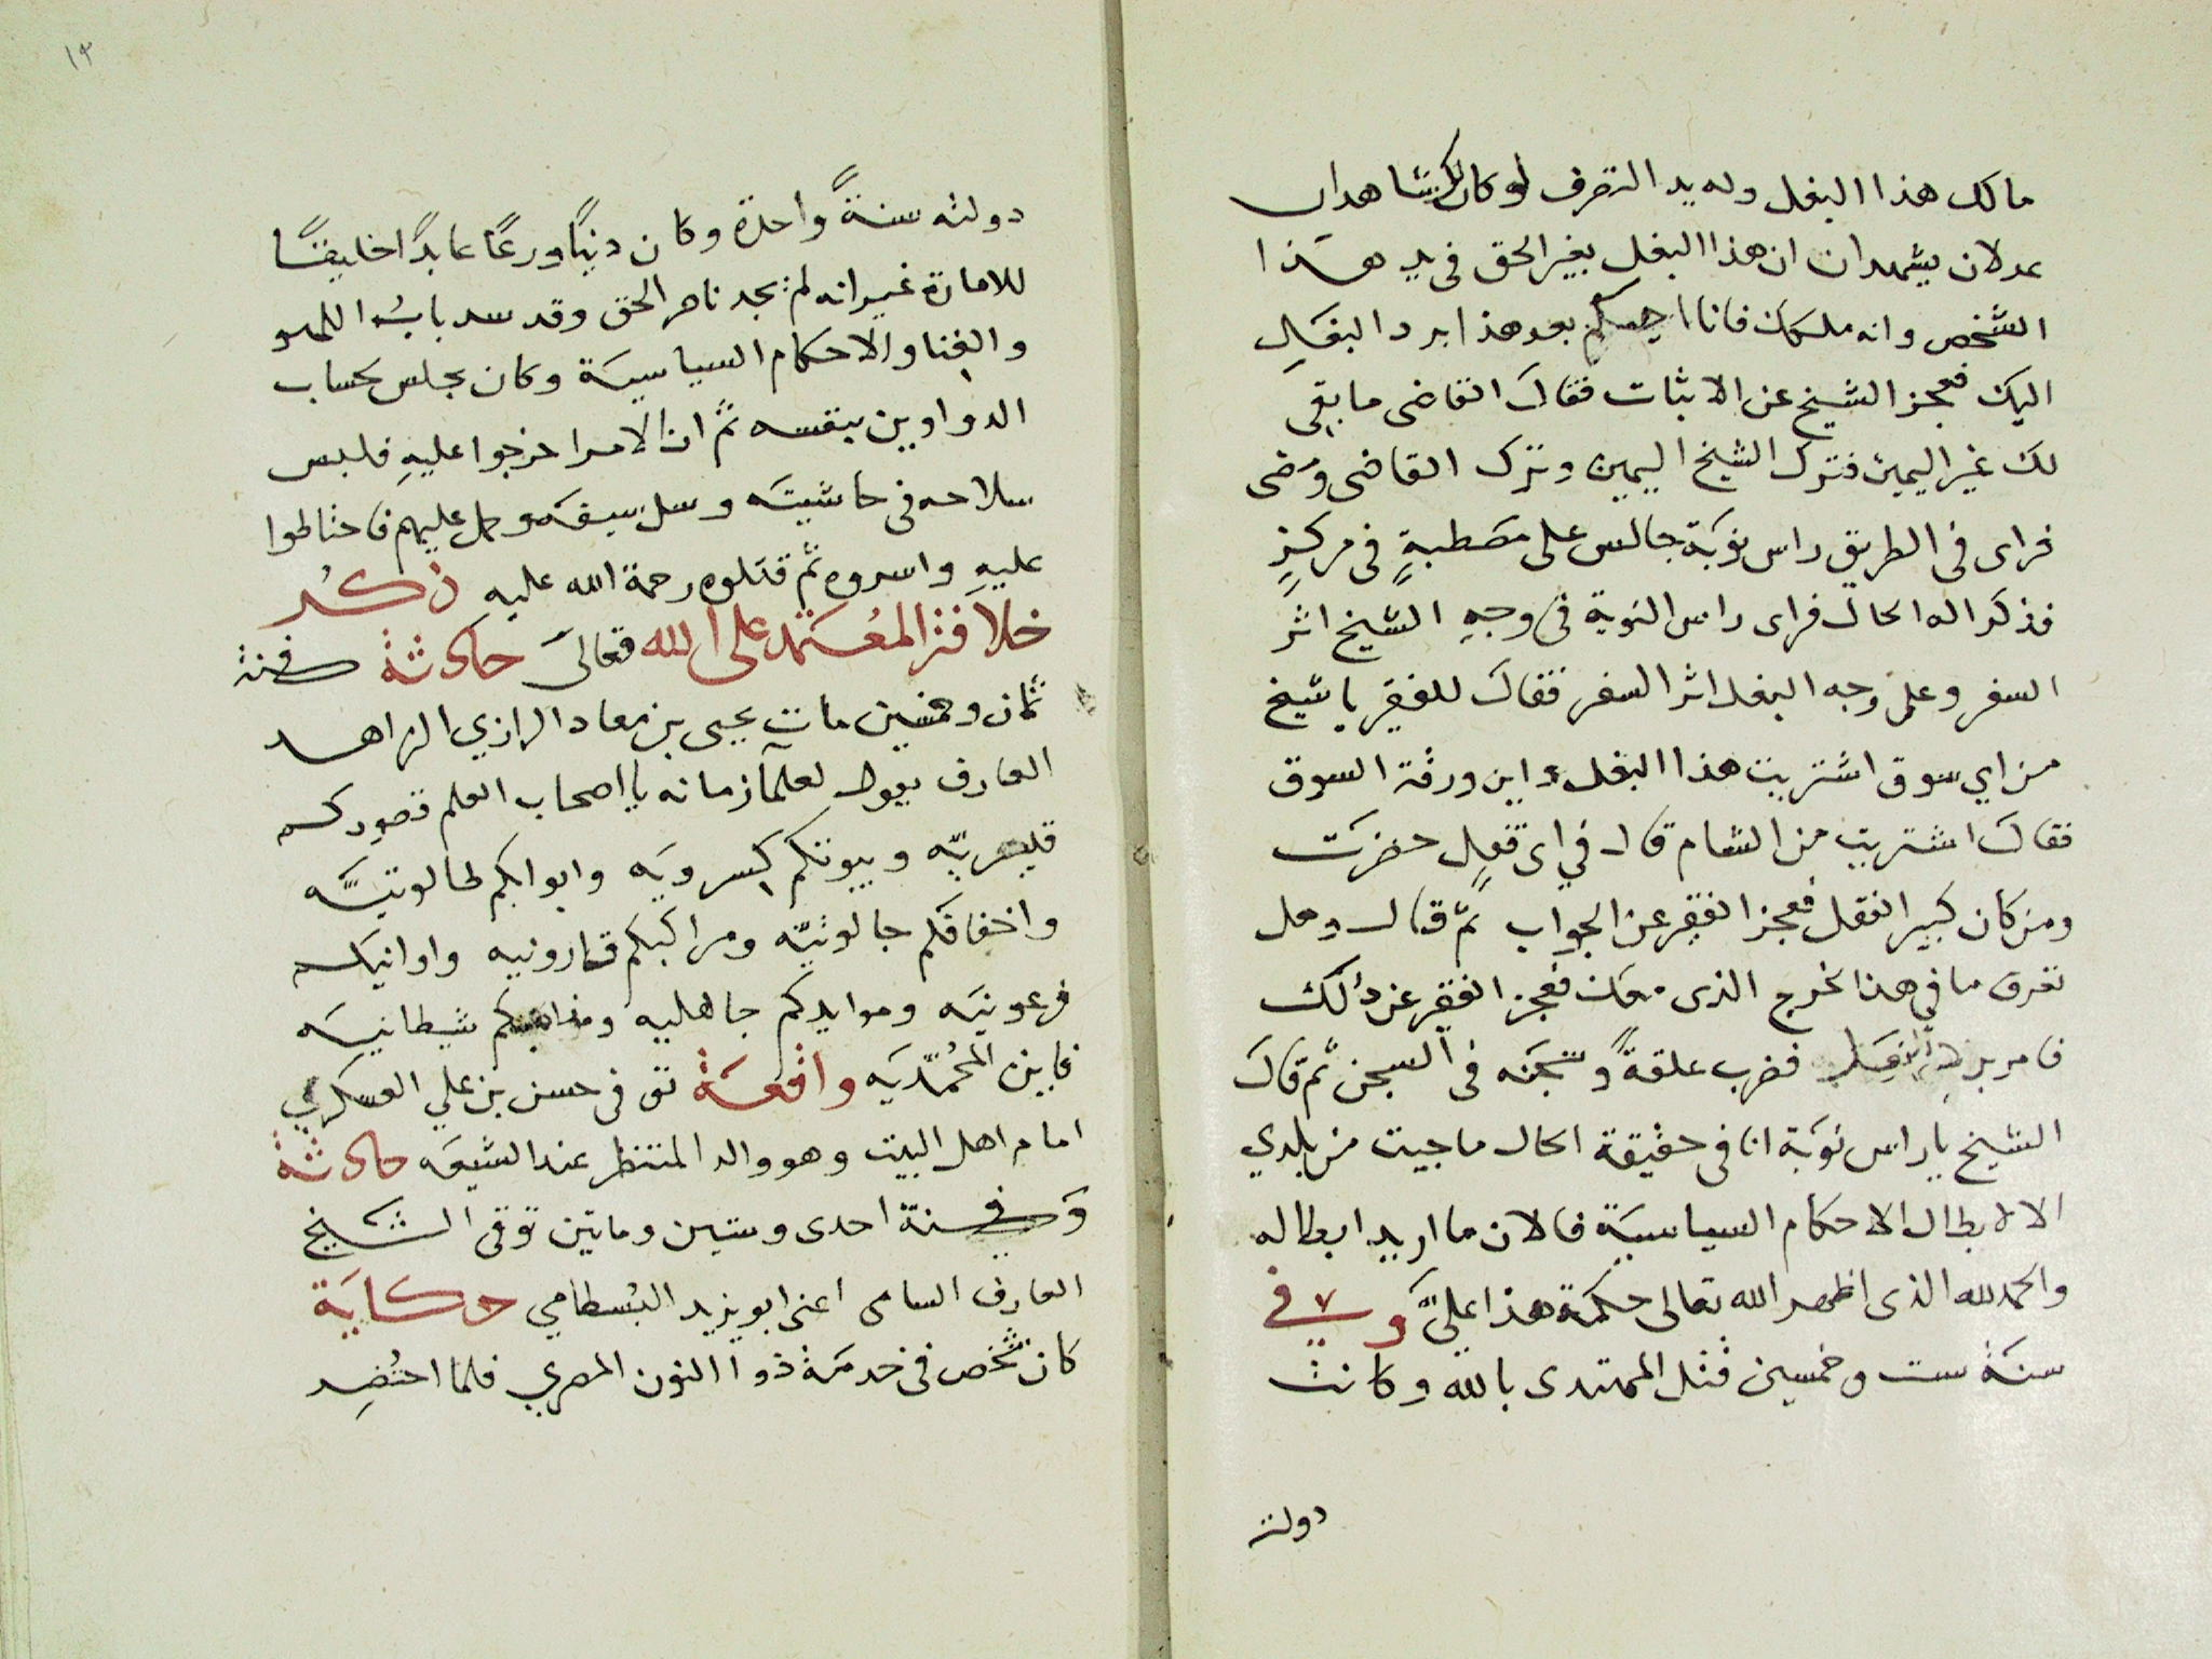 مالك هذا البغل وله يد التصرف لو كان لك شاهدان
عدلان يشهدان ان هذا البغل بغير الحق فى يد هذا
الشخص وانه ملكك فانا احكم بعد هذا برد البغل
اليك فعجز الشيخ عن الاثبات فقال القاضى ما بقى
لك غير اليمين فترك الشيخ اليمين وترك القاضى ومضى
فراى فى الطريق راس نوبة جالس على مصطبةٍ فى مركزٍ
فذكر اله الحال فراى راس النوبة فى وجه الشيخ اثر
السفر وعلى وجه البغل اثر السفر فقال للفقير يا شيخ
من اي سوق اشتريت هذا البغل واين ورقة السوق
فقال اشتريت من الشام قال في اى قفل حضرت
ومن كان كبير القفل فعجز الفقير عن الجواب ثم قال وهل
تعرف ما في هذا الخرج الذى معك فعجز الفقير عن ذلك
فامر برد فضرب علقةً وسجنه فى السجن ثم قال
الشيخ يا راس نوبة انا فى حقيقة الحال ما جيت من بلدي
الا لابطال الاحكام السياسية فالان ما اريد ابطاله
والحمد لله الذى اظهر الله تعالى حكمة هذا عليّ وفي
سنة ست وخمسين قتل المهتدى بالله وكانت
دولته
١٣
دولته سنةً واحدة وكان دينًا ورعًا عابدًا خليقًا
للامارة غير انه لم يجد ناصر الحق وقد سد باب اللهو
والغنا والاحكام السياسية وكان يجلس بحساب
الدواوين بنفسه ثم ان الامرا خرجوا عليه فلبس
سلاحه فى حاشيته وسل سيفه وحمل عليهم فاحتالوا
عليه واسروه ثم قتلوه رحمة الله عليه ذكر
خلافة المعتمد على الله تعالى حادثة فى سنة
ثمان وخمسين مات يحيى بن معاد الرازي الزاهد
العارف يقول لعلمآ زمانه يا اصحاب العلم قصوركم
قيصريّه وبيوتكم كسرويه وابوابكم طالوتيّه
واخفافكم جالوتيّه ومراكبكم قارونيه واوانيكم
فرعونيه وموايدكم جاهليه ومذاهبكم شيطانيه
فاين المحمّديه واقعة توفى حسن بن علي العسكري
امام اهل البيت وهو والد المنتظر عند الشيعه حادثة
وفى سنة احدى وستين وماتين توفى الشيخ
العارف السامى اعنى ابو يزيد البسطامي حكاية
كان شخص فى خدمة ذو االنون المصري فلما احتُضِر